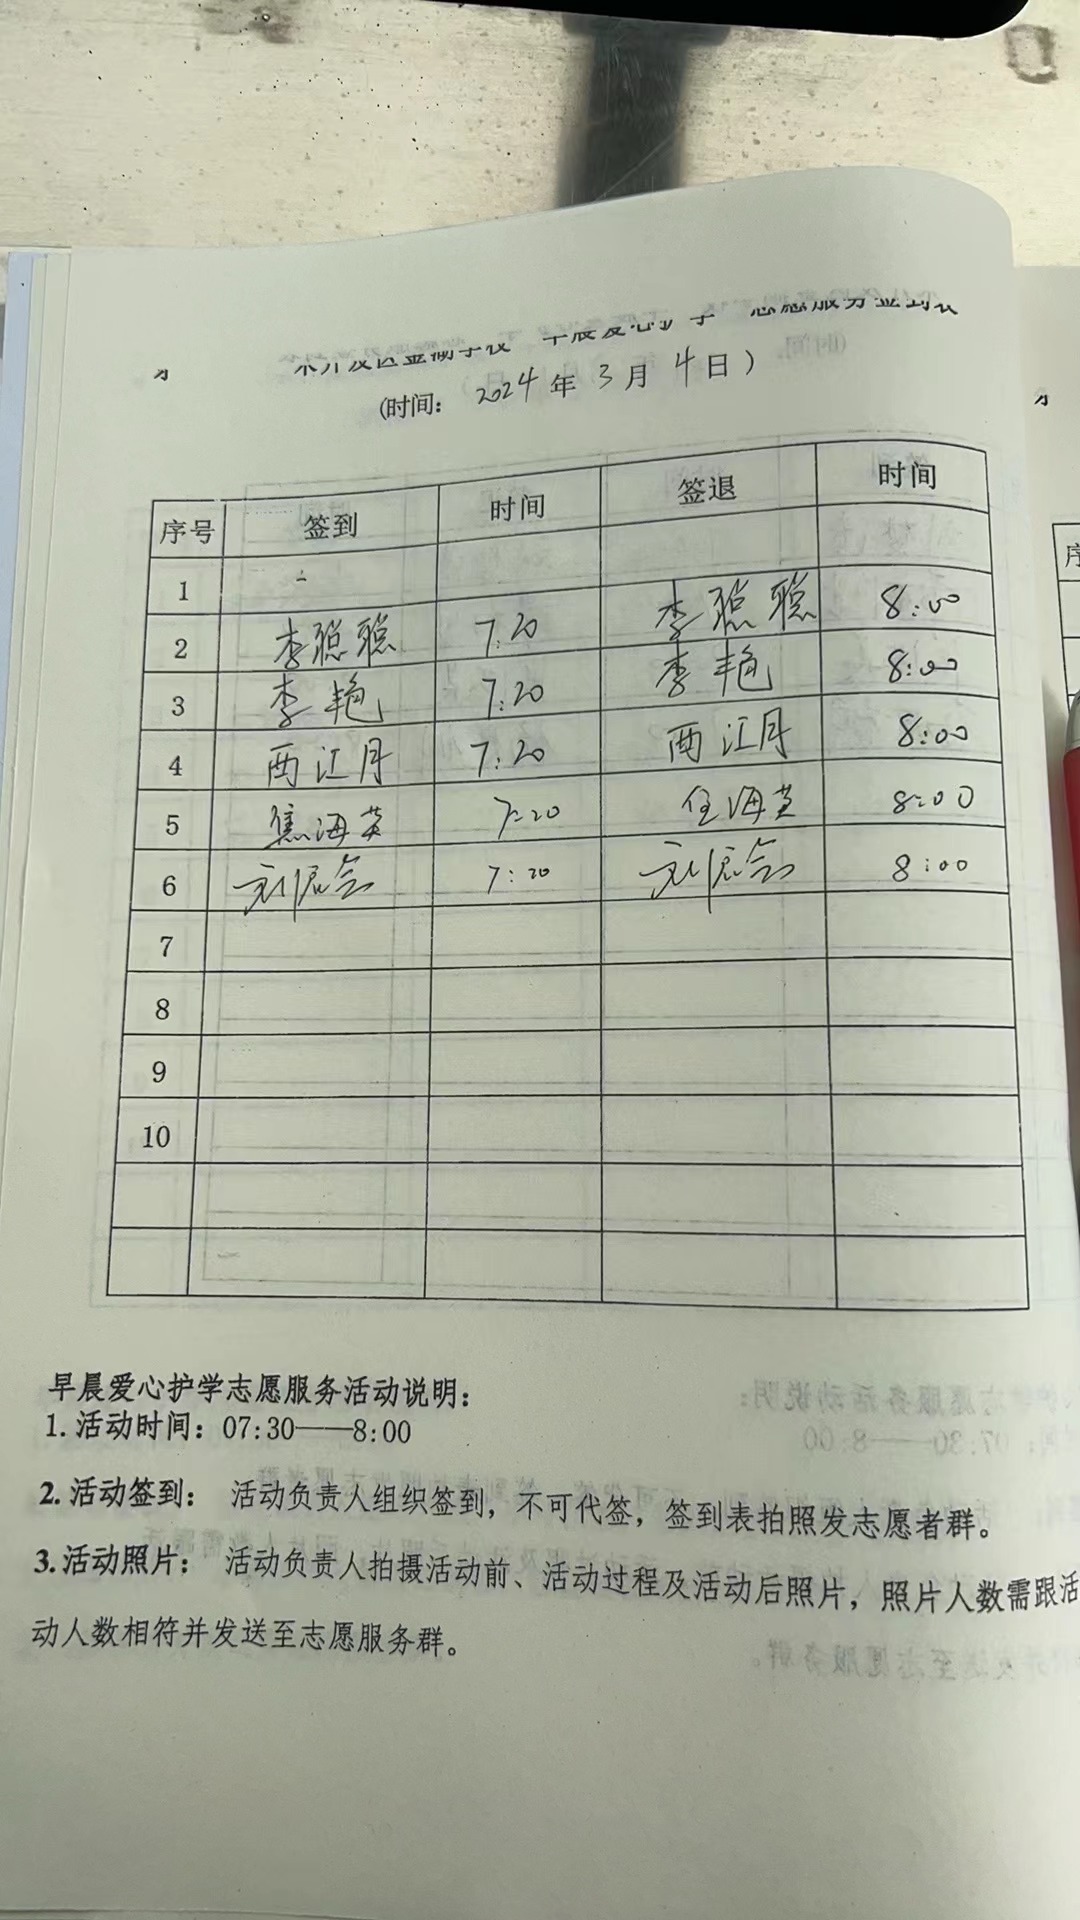 志愿服务签到表
(时间: 2024年3月4日)
序号 签到 时间 签退 时间
1
2 李聪聪 7:20 李聪聪 8:00
3 李艳 7:20 李艳 8:00
4 西江月 7:20 西江月 8:00
5 焦海英 7:20 海英 8:00
6 刘 7:20 刘 8:00
7
8
9
10
早晨爱心护学志愿服务活动说明:
1. 活动时间: 07:30——8:00
2. 活动签到: 活动负责人组织签到, 不可代签, 签到表拍照发志愿者群。
3. 活动照片: 活动负责人拍摄活动前、活动过程及活动后照片, 照片人数需跟活
动人数相符并发送至志愿服务群。